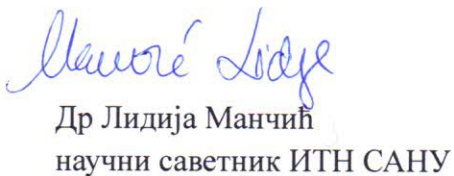 Mančić Lidija
Др Лидија Манчић
научни саветник ИТН САНУ